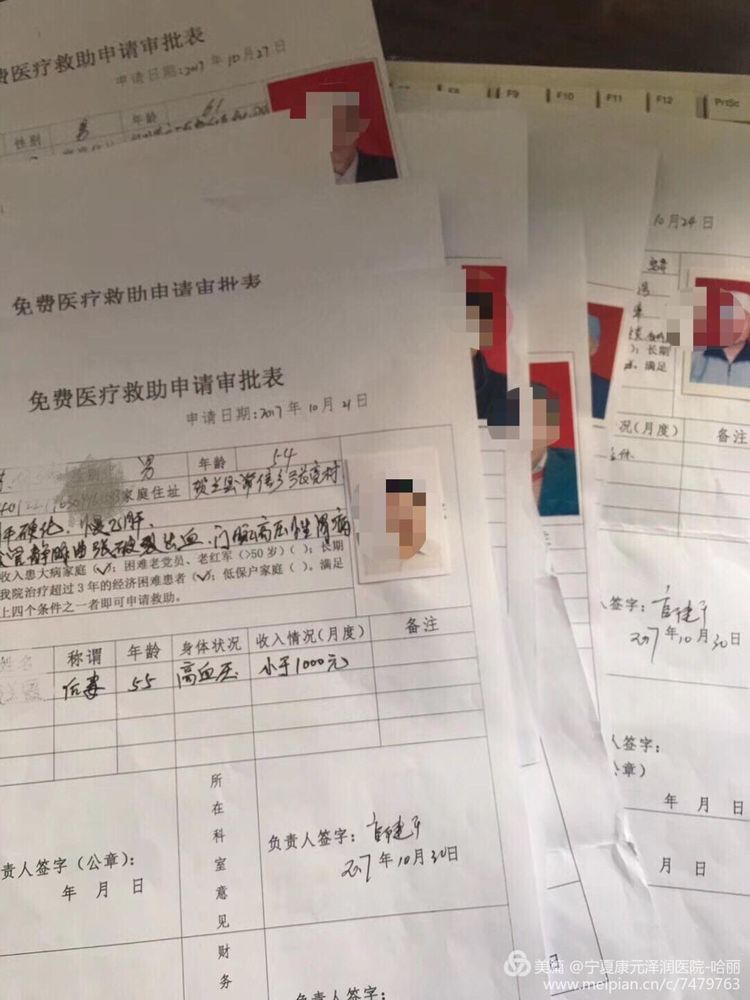 费医疗救助申请审批表
申请日期:2017年10月27日
性别 男 年龄 61
F9 F10 F11 F12 PrtSc
免费医疗救助申请审批表
免费医疗救助申请审批表
申请日期:2017年10月21日
男 年龄 54
家庭住址 贺兰县常信乡张亮村
肝硬化、慢乙肝、
管静脉曲张破裂出血、门脉高压性胃病
收入患大病家庭(√);困难老党员、老红军(>50岁)( );长期
我院治疗超过3年的经济困难患者(√);低保户家庭( )。满足
上四个条件之一者即可申请救助。
姓名 称谓 年龄 身体状况 收入情况(月度) 备注
55 高血压 小于1000元
所在科室意见
负责人签字:
2017年10月30日
责人签字(公章):
年 月 日
财务
10月24日
);长期
满足
况(月度) 备注
人签字:
2017年10月30日
人签字:
公章)
年 月 日
月 日
美篇 @宁夏康元泽润医院-哈丽
www.meipian.cn/c/7479763